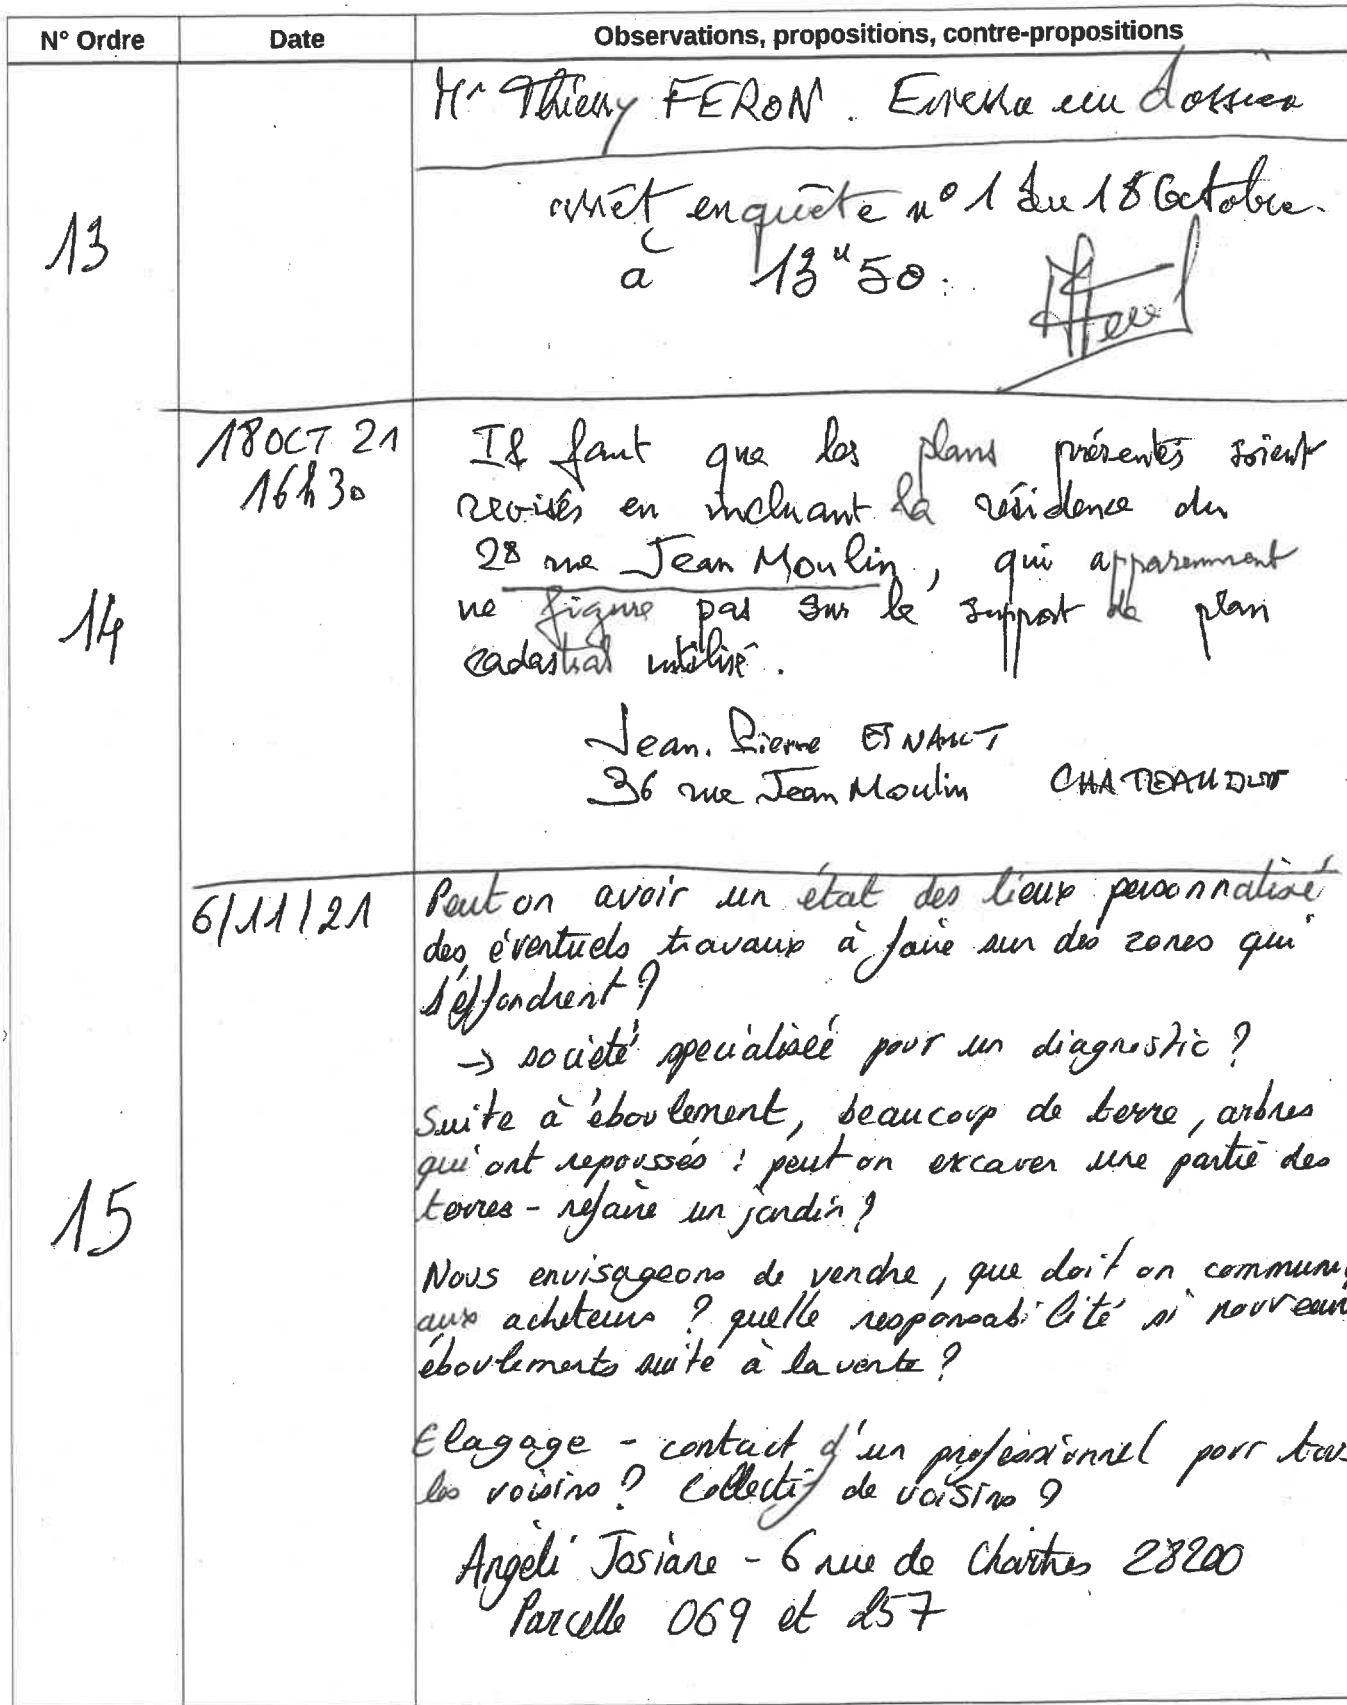 N° Ordre Date Observations, propositions, contre-propositions
Mr Thierry FERON. un dossier
13
arrêt enquête n° 1 du 18 Octobre.
à 13H50.
14
18 OCT 21
16h30
Il faut que les plans présentés soient
revisés en incluant la résidence du
28 rue Jean Moulin, qui apparemment
ne figure pas sur le support de plan
cadastral utilisé.
Jean. Pierre
36 rue Jean Moulin CHATEAUDUN
15
6/11/21
Peut on avoir un état des lieux personnalisé
des éventuels travaux à faire sur des zones qui
s'effondrent ?
→ société spécialisée pour un diagnostic ?
Suite à éboulement, beaucoup de terre, arbres
qui ont repoussés : peut on excaver une partie des
terres - refaire un jardin ?
Nous envisageons de vendre, que doit on communi
aux acheteurs ? quelle responsabilité si nouveaux
éboulements suite à la vente ?
Elagage - contact d'un professionnel pour tous
les voisins ? Collectif de voisins ?
Angéli Josiane - 6 rue de Chartres 28200
Parcelle 069 et 257